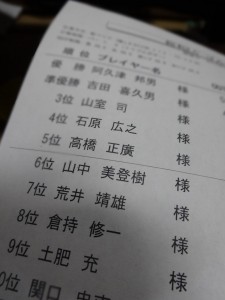 順 位 プレイヤー名
優 勝 阿久津 邦男 様
準優勝 吉田 喜久男 様
3位 山室 司 様
4位 石原 広之 様
5位 高橋 正廣 様
6位 山中 美登樹 様
7位 荒井 靖雄 様
8位 倉持 修一 様
9位 土肥 充 様
0位 関口